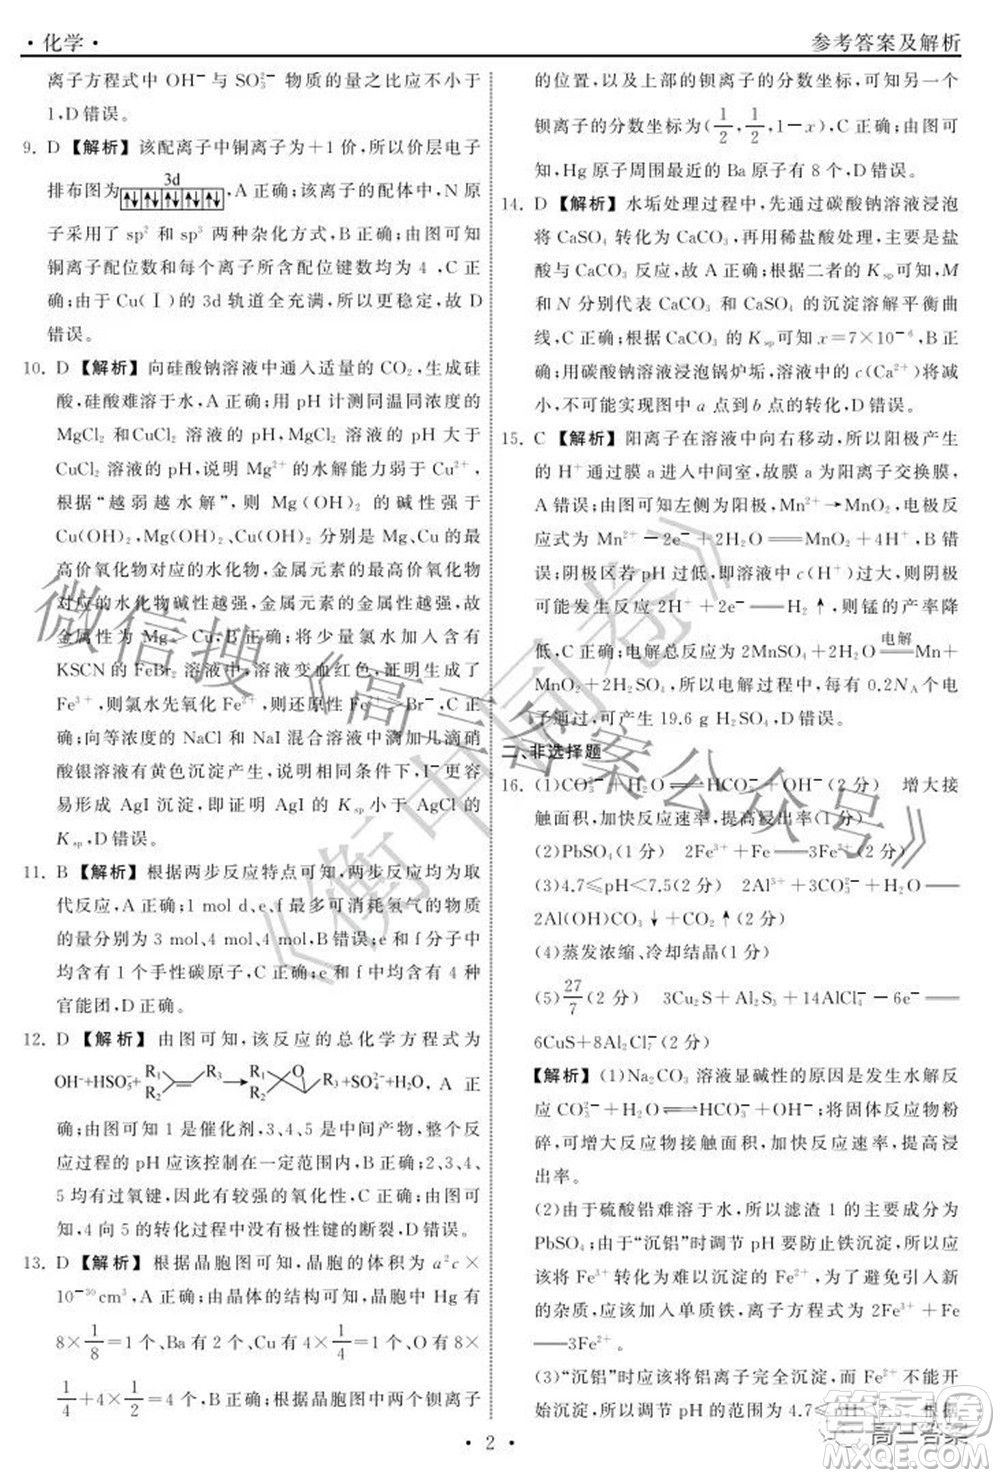 · 化学 ·
参考答案及解析
离子方程式中 OH⁻ 与 SO₃²⁻ 物质的量之比应不小于
1,D 错误。
9. D 【解析】该配离子中铜离子为+1 价,所以价层电子
3d
排布图为 ↑↓ ↑↓ ↑↓ ↑↓ ↑↓ ,A 正确;该离子的配体中,N 原
子采用了 sp² 和 sp³ 两种杂化方式,B 正确;由图可知
铜离子配位数和每个离子所含配位键数均为 4 ,C 正
确;由于 Cu(Ⅰ) 的 3d 轨道全充满,所以更稳定,故 D
错误。
10. D 【解析】向硅酸钠溶液中通入适量的 CO₂,生成硅
酸,硅酸难溶于水,A 正确;用 pH 计测同温同浓度的
MgCl₂ 和CuCl₂ 溶液的 pH,MgCl₂ 溶液的 pH 大于
CuCl₂ 溶液的 pH,说明 Mg²⁺ 的水解能力更弱,
根据“越弱越水解”,则 Mg(OH)₂ 的碱性强于
Cu(OH)₂,Mg(OH)₂、Cu(OH)₂ 分别是 Mg、Cu 的最
高价氧化物对应的水化物,金属元素的最高价氧化物
对应的水化物碱性越强,金属元素的金属性越强,故
金属性为 Mg＞Cu,B 正确;将少量氯水加入含有
KSCN 的 FeBr₂ 溶液中,溶液变血红色,则反应生成
Fe³⁺,则氯水先氧化 Fe²⁺,则还原性 Fe²⁺＞Br⁻,C 正
确;向等浓度的 NaCl 和 NaI 混合溶液中滴加几滴硝
酸银溶液有黄色沉淀产生,说明相同条件下,I⁻ 更容
易形成 AgI 沉淀,即证明 AgI 的 Kₛₚ小于 AgCl 的
Kₛₚ,D 错误。
11. B 【解析】根据两步反应特点可知,两步反应均为取
代反应,A 正确;1 mol d、e、f 最多可消耗氢气的物质
的量分别为 3 mol、4 mol、4 mol,B 错误;e 和 f 分子中
均含有 1 个手性碳原子,C 正确;d、e、f 中均含有 4 种
官能团,D 正确。
12. D 【解析】由图可知,该反应的总化学方程式为
OH⁻+HSO₅⁻+ R₁ R₂ R₃ → R₁ R₂ O R₃ +SO₄²⁻+H₂O,A 正
确;由图可知 1 是催化剂,3、4、5 是中间产物,整个反
应过程的 pH 应该控制在一定范围内,B 正确;2、3、4、
5 均有过氧键,因此有较强的氧化性,C 正确;由图可
知,4 向 5 的转化过程中没有极性键的断裂,D 错误。
13. D 【解析】根据晶胞图可知,晶胞的体积为 a²c×
10⁻³⁰cm³,A 正确;由晶体的结构可知,晶胞中 Hg 有
8×1/8=1 个、Ba 有 2 个、Cu 有 4×1/4=1 个、O 有 8×
1/4+4×1/2=4 个,B 正确;根据晶胞图中两个钡离子
的位置,以及上部的钡离子的分数坐标,可知另一个
钡离子的分数坐标为(1/2,1/2,1−x),C 正确;由图可
知,Hg 原子周围最近的 Ba 原子有 8 个,D 错误。
14. D 【解析】水垢处理过程中,先通过碳酸钠溶液浸泡
将 CaSO₄ 转化为 CaCO₃,再用稀盐酸处理,主要是盐
酸与 CaCO₃ 反应,故 A 正确;根据二者的 Kₛₚ可知,M
和 N 分别代表 CaCO₃ 和 CaSO₄ 的沉淀溶解平衡曲
线,C 正确;根据 CaCO₃ 的 Kₛₚ可知 x=7×10⁻⁶,B 正
确;用碳酸钠溶液浸泡锅炉垢,溶液中的 c(Ca²⁺)减
小,不可能实现图中 a 点到 b 点的转化,D 错误。
15. C 【解析】阳离子在溶液中向右移动,所以阳极产生
的 H⁺通过膜 a进入中间室,故膜 a 为阳离子交换膜,
A 错误;由图可知左侧为阳极,Mn²⁺→MnO₂,电极反
应式为 Mn²⁺−2e⁻+2H₂O══MnO₂+4H⁺,B 错
误;阴极区若 pH过小,即溶液中 c(H⁺)过大,则阴极
可能发生反应 2H⁺+2e⁻══H₂↑,则锰的产率降
低,C 正确;电解总反应为 2MnSO₄+2H₂O 电解══Mn+
MnO₂+2H₂SO₄,所以电解过程中,每有 0.2Nₐ个电
子通过,可产生 19.6 g H₂SO₄,D 错误。
二、非选择题
16. (1)CO₃²⁻+H₂O⇌HCO₃⁻+OH⁻(2 分) 增大接
触面积,加快反应速率,提高浸出率(1 分)
(2)PbSO₄(1 分) 2Fe³⁺+Fe══3Fe²⁺(2 分)
(3)4.7≤pH<7.5(2 分) 2Al³⁺+3CO₃²⁻+H₂O══
2Al(OH)CO₃↓+CO₂↑(2 分)
(4)蒸发浓缩、冷却结晶(1 分)
(5)27/7(2 分) 3Cu₂S+Al₂S₃+14AlCl₄⁻−6e⁻══
6CuS+8Al₂Cl₇⁻(2 分)
【解析】(1)Na₂CO₃ 溶液显碱性的原因是发生水解反
应 CO₃²⁻+H₂O⇌HCO₃⁻+OH⁻;将固体反应物粉
碎,可增大反应物接触面积,加快反应速率,提高浸
出率。
(2)由于硫酸铅难溶于水,所以滤渣 1 的主要成分为
PbSO₄;由于“沉铝”时调节 pH 要防止铁沉淀,所以应
该将 Fe³⁺转化为难以沉淀的 Fe²⁺,为了避免引入新
的杂质,应该加入单质铁,离子方程式为 2Fe³⁺+Fe
══3Fe²⁺。
(3)“沉铝”时应该将铝离子完全沉淀,而 Fe²⁺不能开
始沉淀,所以应该调节 pH 的范围为 4.7≤pH<7.5;
· 2 ·
微信搜《高三答案公众号》
《衡中同卷》
答案圈
高三答案